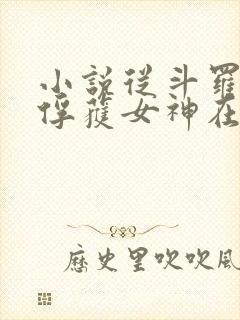 小說從斗羅
俘蒦女神在
歷史里吹吹風